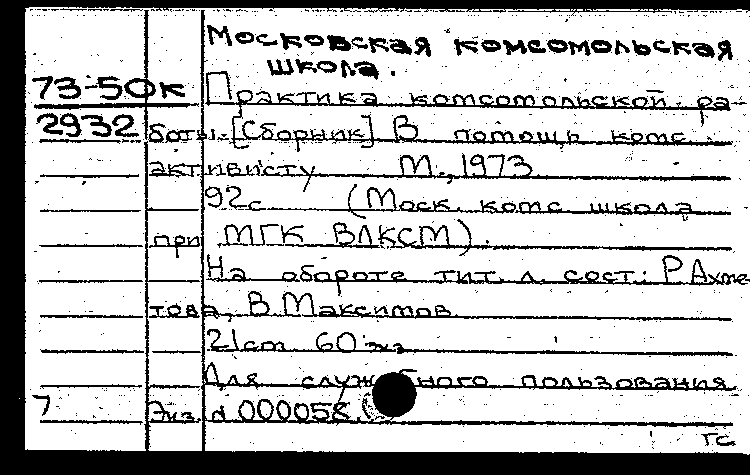 Московская комсомольская
школа.
73-50к Практика комсомольской ра-
2932 боты. [Сборник] В помощь комс.
активисту М., 1973
92с (Моск. комс школа
при МГК ВЛКСМ).
На обороте тит. л. сост.: Р Ахме
това, В. Максимов
21см 60 экз
Для служебного пользования
7 Экз. № 000058.
ГС